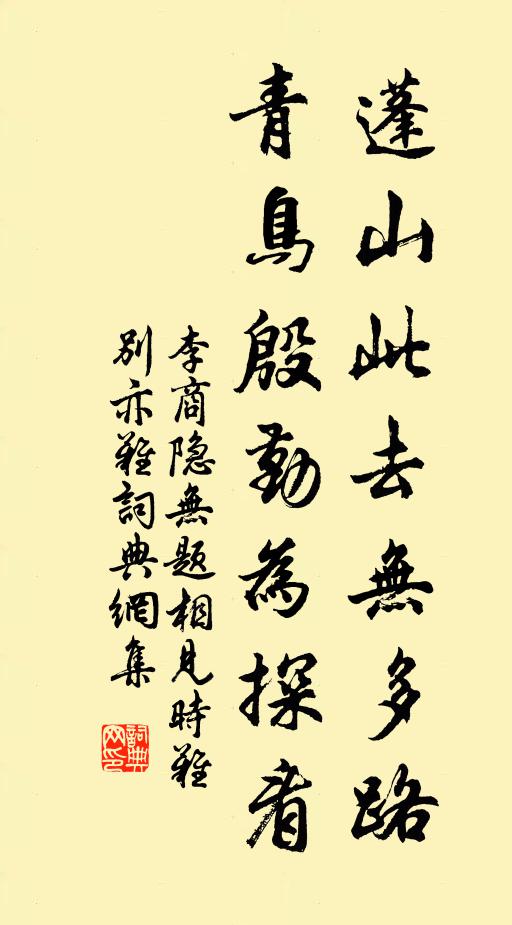 蓬山此去無多路
青鳥殷勤為探看
李商隐無题相見時難
別亦難詞典網集
詞典网印